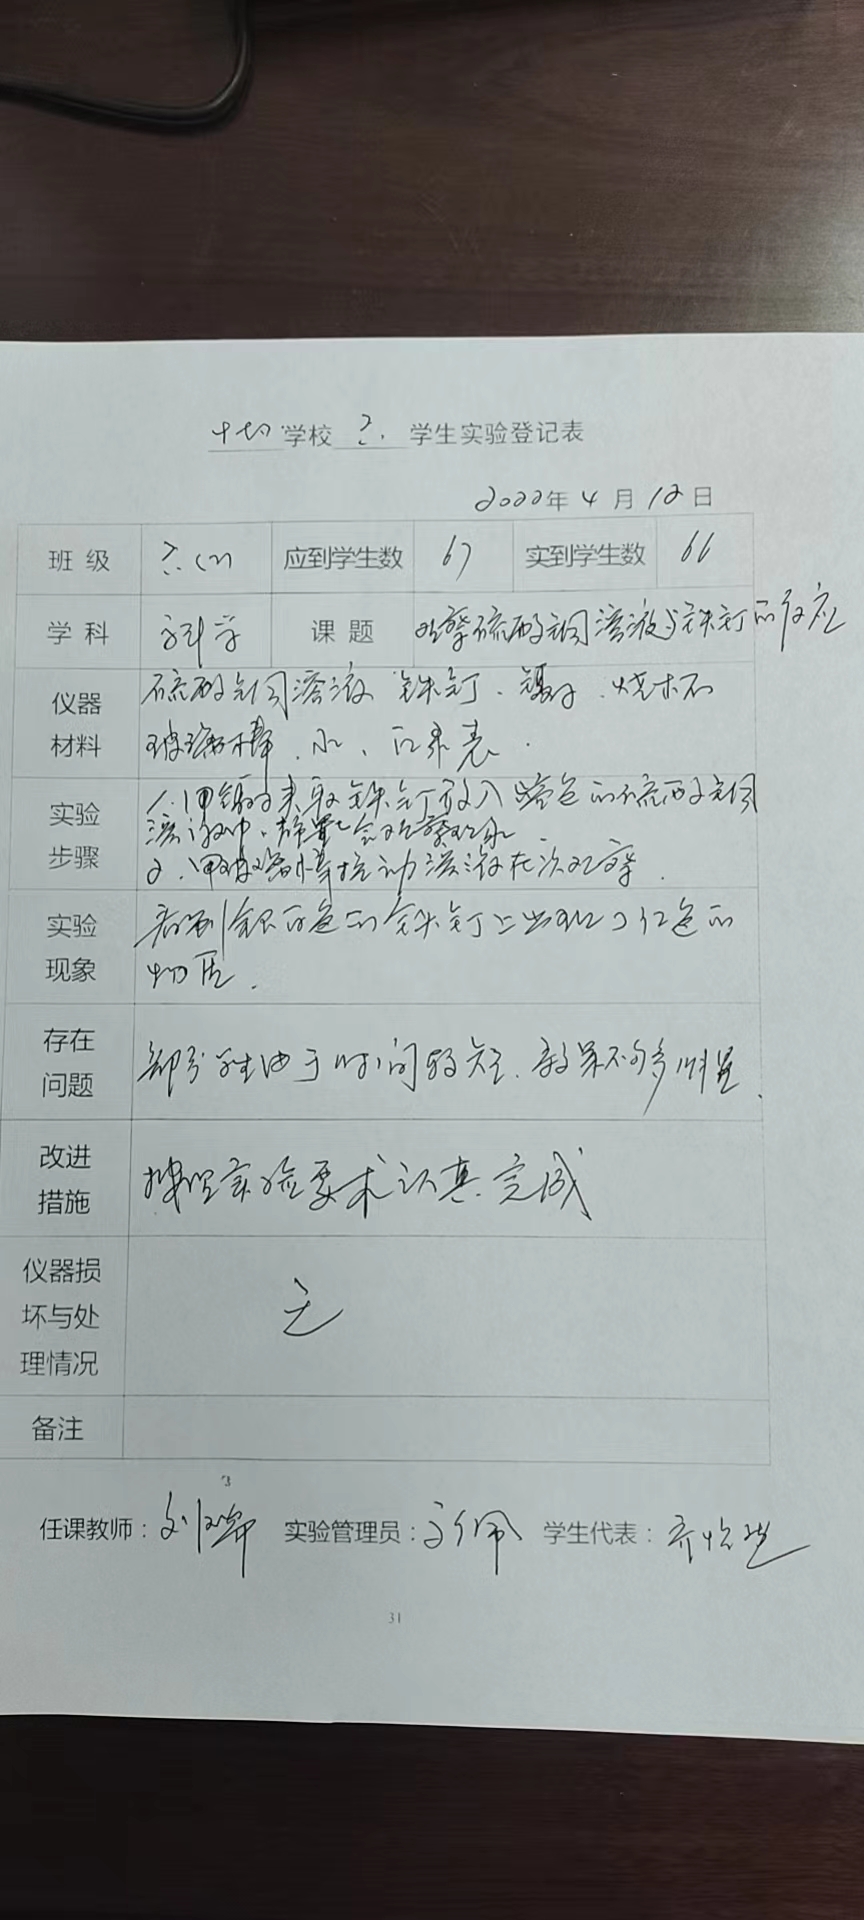 学校 学生实验登记表
2022年4月12日
班级 六(1) 应到学生数 67 实到学生数 66
学科 科学 课题 观察硫酸铜溶液与铁钉的反应
仪器材料
硫酸铜溶液 铁钉、镊子、烧杯
玻璃棒、水、记录表
实验步骤
1、用镊子夹取铁钉放入蓝色的硫酸铜
溶液中、静置会观察现象
2、用玻璃棒搅动溶液在次观察.
实验现象
看到银白色的铁钉上出现了红色的
物质.
存在问题
部分学生由于时间较短、效果不够多明显.
改进措施
按照实验要求认真完成
仪器损坏与处理情况
无
备注
任课教师: 实验管理员: 学生代表:
31